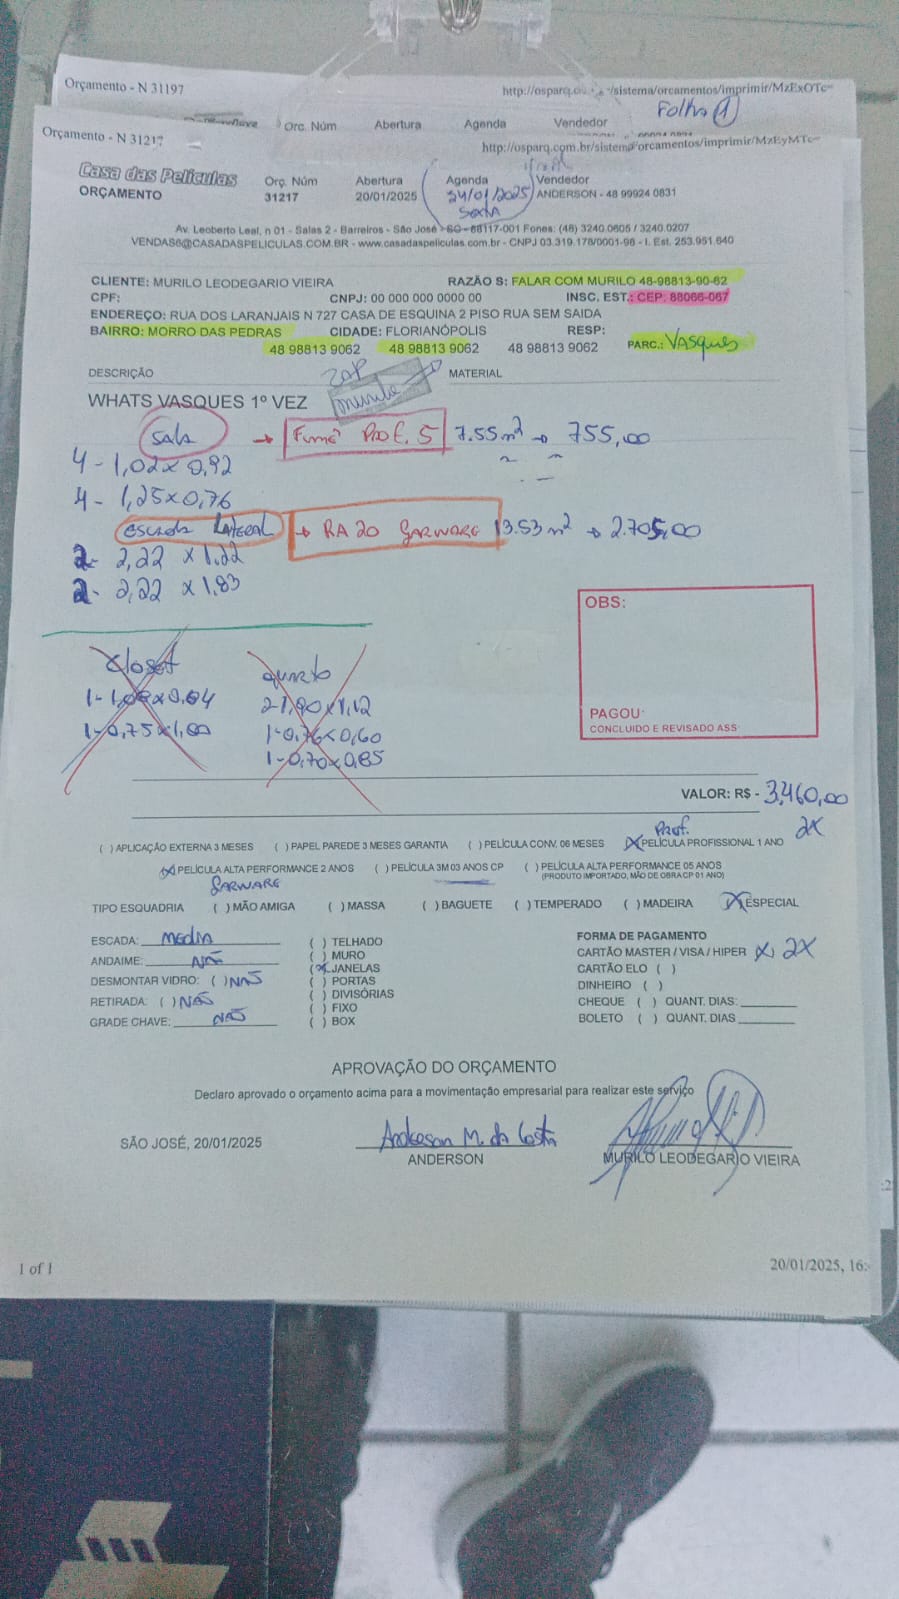 Orçamento - N 31197
Folha 1
Orc. Núm Abertura Agenda Vendedor
Orçamento - N 31217
http://osparq.com.br/sistema/orcamentos/imprimir/MzEyMTc=
Casa das Películas
ORÇAMENTO
Orç. Núm Abertura Agenda Vendedor
31217 20/01/2025 24/01/2025 ANDERSON - 48 99924 0831
Sexta
Av. Leoberto Leal, n 01 - Salas 2 - Barreiros - São José - SC - 88117-001 Fones: (48) 3240.0605 / 3240.0207
VENDAS6@CASADASPELICULAS.COM.BR - www.casadaspeliculas.com.br - CNPJ 03.319.178/0001-98 - I. Est. 253.951.640
CLIENTE: MURILO LEODEGARIO VIEIRA RAZÃO S: FALAR COM MURILO 48-98813-90-62
CPF: CNPJ: 00 000 000 0000 00 INSC. EST.: CEP: 88066-067
ENDEREÇO: RUA DOS LARANJAIS N 727 CASA DE ESQUINA 2 PISO RUA SEM SAIDA
BAIRRO: MORRO DAS PEDRAS CIDADE: FLORIANÓPOLIS RESP:
48 98813 9062 48 98813 9062 48 98813 9062 PARC.: Vasques
DESCRIÇÃO ZAP MATERIAL
murilo
WHATS VASQUES 1º VEZ
Sala → Fumê Prof. 5 7.55m² → 755,00
4 - 1,02 x 0,92
4 - 1,25 x 0,76
escada Lateral → RA 20 GARWARE 13.53m² → 2.705,00
2 - 2,22 x 1.22
2 - 2,22 x 1.83
closet quarto
1 - 0,75 x 1,00
1 - 0,76 x 0,60
1 - 0,70 x 0,85
OBS:
PAGOU:
CONCLUIDO E REVISADO ASS:
VALOR: R$ - 3.460,00
Prof. 2X
( ) APLICAÇÃO EXTERNA 3 MESES ( ) PAPEL PAREDE 3 MESES GARANTIA ( ) PELÍCULA CONV. 06 MESES (X) PELÍCULA PROFISSIONAL 1 ANO
(X) PELÍCULA ALTA PERFORMANCE 2 ANOS ( ) PELÍCULA 3M 03 ANOS CP ( ) PELÍCULA ALTA PERFORMANCE 05 ANOS
(PRODUTO IMPORTADO, MÃO DE OBRA CP 01 ANO)
GARWARE
TIPO ESQUADRIA ( ) MÃO AMIGA ( ) MASSA ( ) BAGUETE ( ) TEMPERADO ( ) MADEIRA (X) ESPECIAL
ESCADA: MEDIA
ANDAIME: NÃO
DESMONTAR VIDRO: ( ) NÃO
RETIRADA: ( ) NÃO
GRADE CHAVE: NÃO
( ) TELHADO
( ) MURO
(X) JANELAS
( ) PORTAS
( ) DIVISÓRIAS
( ) FIXO
( ) BOX
FORMA DE PAGAMENTO
CARTÃO MASTER / VISA / HIPER (X) 2X
CARTÃO ELO ( )
DINHEIRO ( )
CHEQUE ( ) QUANT. DIAS:
BOLETO ( ) QUANT. DIAS
APROVAÇÃO DO ORÇAMENTO
Declaro aprovado o orçamento acima para a movimentação empresarial para realizar este serviço
SÃO JOSÉ, 20/01/2025
Anderson M. da Costa
ANDERSON
MURILO LEODEGARIO VIEIRA
1 of 1
20/01/2025, 16: